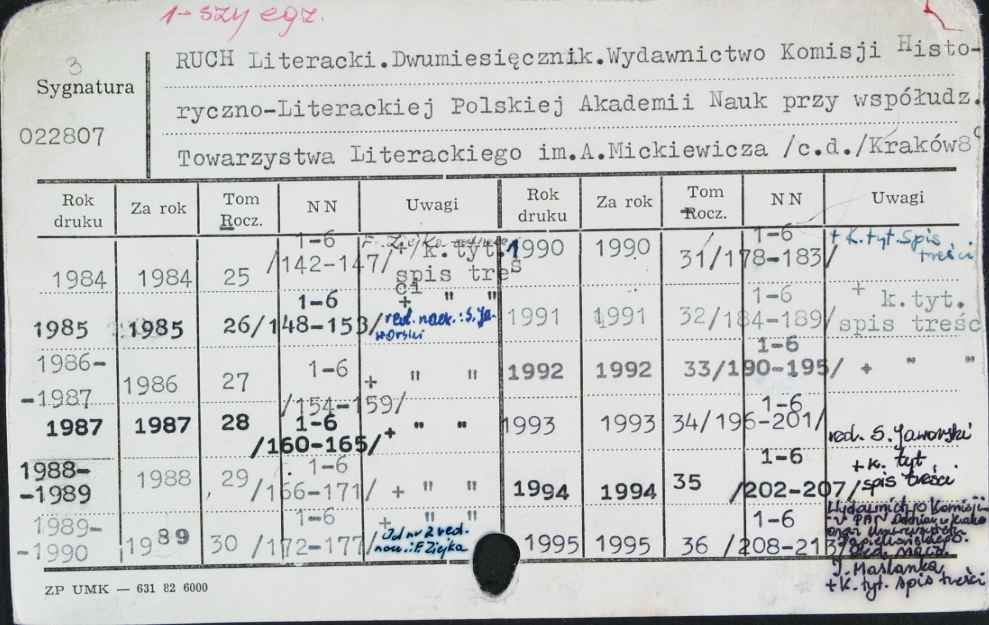 1-szy egz.
3
Sygnatura
022807
RUCH Literacki.Dwumiesięcznik.Wydawnictwo Komisji Histo-
ryczno-Literackiej Polskiej Akademii Nauk przy współudz.
Towarzystwa Literackiego im.A.Mickiewicza /c.d./Kraków8°
Rok druku Za rok Tom Rocz. NN Uwagi Rok druku Za rok Tom Rocz. NN Uwagi
1984 1984 25 1-6 /142-147/ +/k.tyt. spis treści
1985 1985 26 1-6 /148-153/ + " " red. nacz.: S. Jaworski
1986-1987 1986 27 1-6 /154-159/ + " "
1987 1987 28 1-6 /160-165/ + " "
1988-1989 1988 29 1-6 /166-171/ + " "
1989-1990 1989 30 1-6 /172-177/ + " " Od nr 2 red. nacz.: F. Ziejka
1990 1990 31 1-6 /178-183/ + k.tyt. spis treści
1991 1991 32 1-6 /184-189/ + k.tyt. spis treśc
1992 1992 33 1-6 /190-195/ + " "
1993 1993 34 1-6 /196-201/
1994 1994 35 1-6 /202-207/ red. S. Jaworski + k. tyt spis treści
1995 1995 36 1-6 /208-213/ Wydawnictwo Komisji PAN Oddział w Krako Uniwersytetu Jagiellońskiego. Red. nacz. J. Maślanka + k. tyt. spis treści
ZP UMK — 631 82 6000